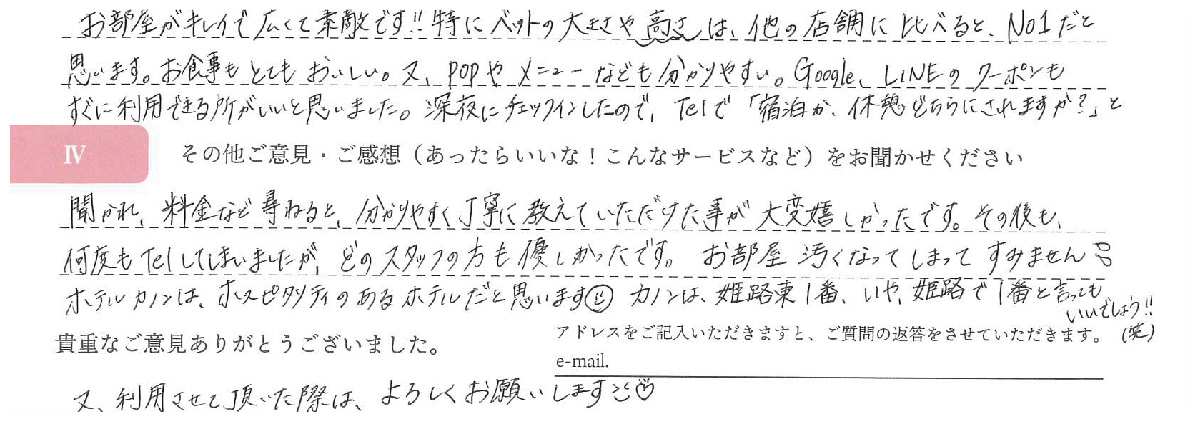 お部屋がキレイで広くて素敵です!!特にベットの大きさや高さは、他の店舗に比べると、No1だと
思います。お食事もとてもおいしい。又、POPやメニューなども分かりやすい。Google、LINEのクーポンも
すぐに利用できる所がいいと思いました。深夜にチェックインしたので、Telで「宿泊か、休憩どちらにされますか?」と
IV その他ご意見・ご感想（あったらいいな！こんなサービスなど）をお聞かせください
聞かれ、料金など尋ねると、分かりやすく丁寧に教えていただけた事が大変嬉しかったです。その後も、
何度もTelしてしまいましたが、どのスタッフの方も優しかったです。 お部屋汚くなってしまってすみません
ホテルカノンは、ホスピタリティのあるホテルだと思います カノンは、姫路東1番、いや、姫路で1番と言っても
いいでしょう!!
(笑)
貴重なご意見ありがとうございました。
アドレスをご記入いただきますと、ご質問の返答をさせていただきます。
e-mail.
又、利用させて頂いた際は、よろしくお願いします